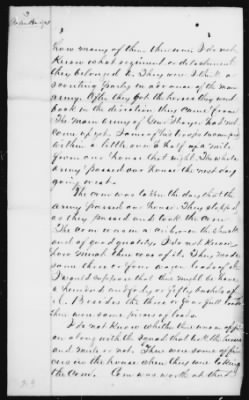 how many of them there were I do not
know what regiment or detachment
they belonged to. They were I think a
scouting party in advance of the main
army. After they got the horses they went
back in the direction they came from
The main army of Genl had not
come up yet. Some of his troops encamped
within a little over a half of a mile
from our house that night. The whole
army passed our house the next day
going west.
The corn was taken the day that the
army passed our house. They stopped
as they passed and took the corn
The corn was in a in the shuck
and of good quality. I do not know
how much there was of it. They made
some three or four wagon loads of it
I would suppose that there might have been
a hundred and forty or fifty bushels of
it. Besides the three or four full loads
there were some pieces of loads.
I do not know whether there was an officer
along with the squad that took the horses
and mule or not. There were some officers
at the house when they were taking
the corn. Corn was worth at the